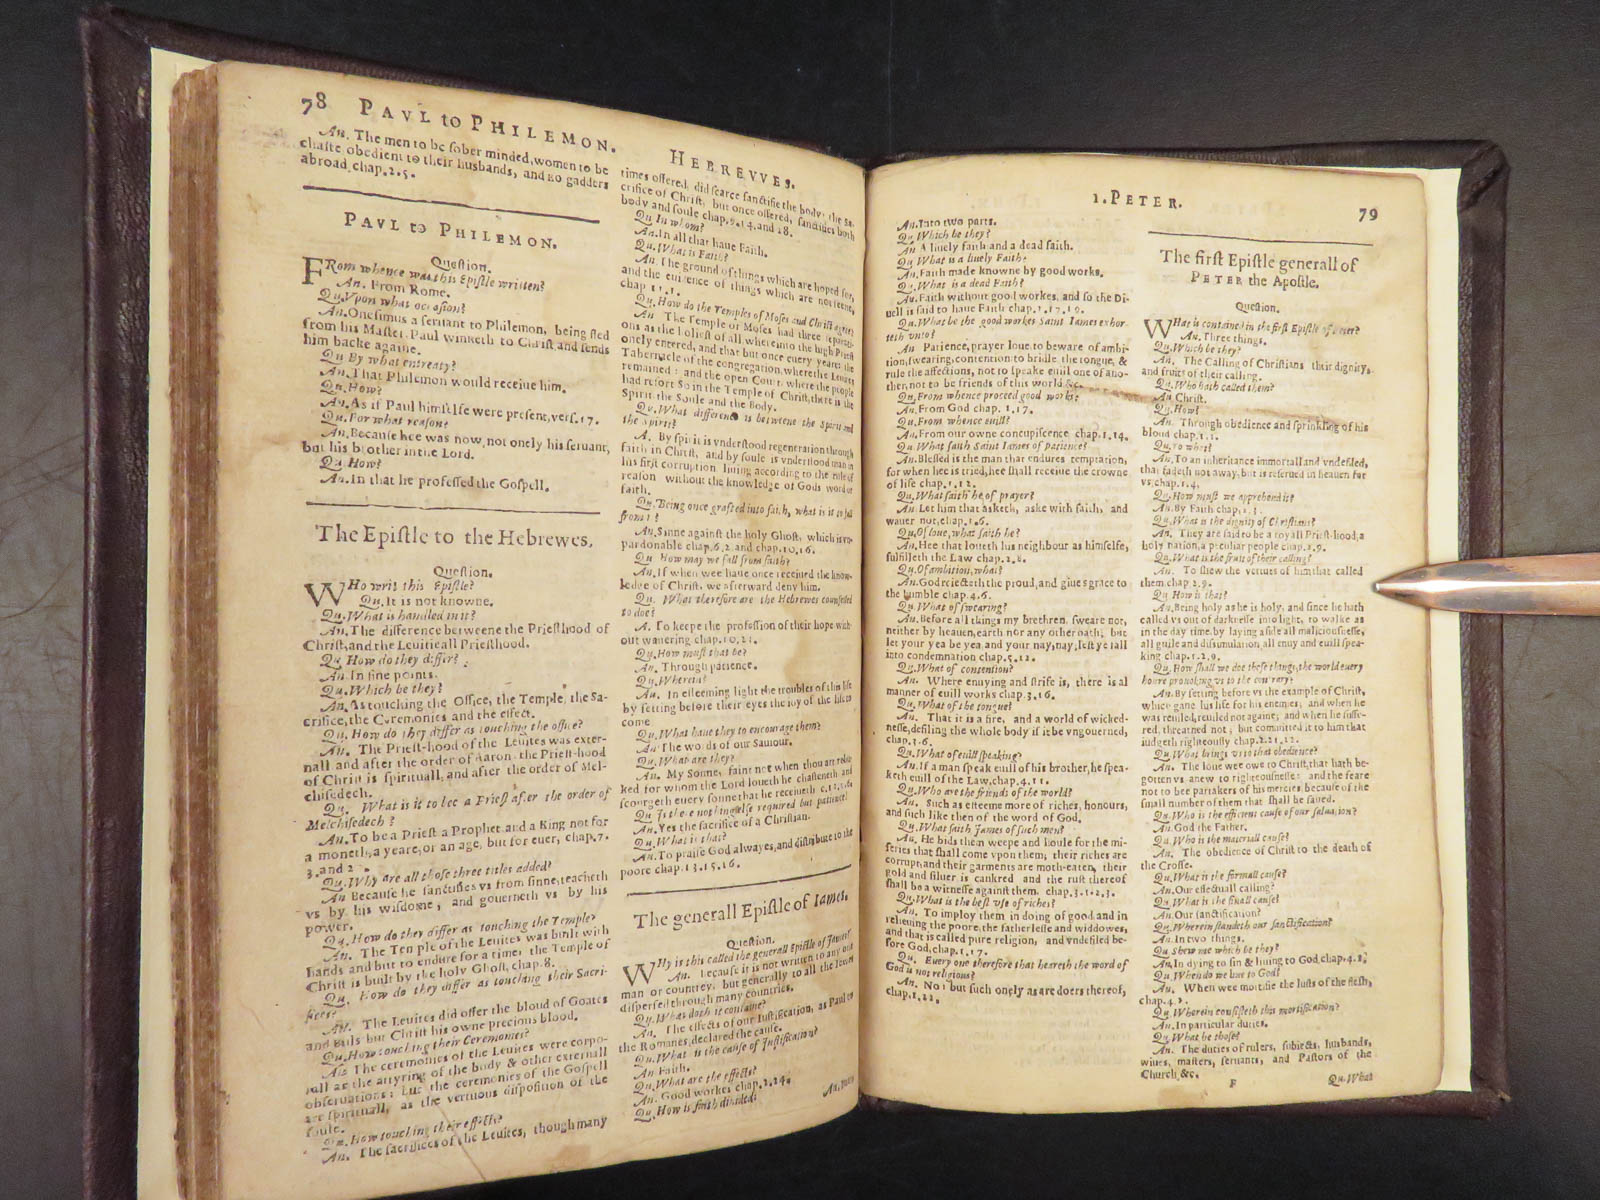 78 PAVL to PHILEMON.
An. The men to be sober minded, women to be
chaste obedient to their husbands, and no gadders
abroad chap.2.5.
PAVL to PHILEMON.
Question.
FRom whence was this Epistle written?
An. From Rome.
Qu. Vpon what occasion?
An. Onesimus a seruant to Philemon, being fled
from his Master, Paul winketh to Christ and sends
him backe againe.
Qu. By what entreaty?
An. That Philemon would receiue him.
Qu. How?
An. As if Paul himselfe were present, vers.17.
Qu. For what reason?
An. Because hee was now, not onely his seruant,
but his brother in the Lord.
Qu. How?
An. In that he professed the Gospell.
The Epistle to the Hebrewes.
Question.
WHo writ this Epistle?
Qu. It is not knowne.
Qu. What is handled in it?
An. The difference betweene the Priesthood of
Christ, and the Leuiticall Priesthood.
Qu. How do they differ?
An. In fine points.
Qu. Which be they?
An. As touching the Office, the Temple, the Sa-
crifice, the Ceremonies and the effect.
Qu. How do they differ as touching the office?
An. The Priest-hood of the Leuites was exter-
nall and after the order of Aaron: the Priest-hood
of Christ is spirituall, and after the order of Mel-
chisedech.
Qu. What is it to bee a Priest after the order of
Melchisedech?
An. To be a Priest a Prophet and a King not for
a moneth, a yeare, or an age, but for euer, chap.7.
3. and
Qu. Why are all those three titles added?
An Because he sanctifies vs from sinne, teacheth
vs by his wisdome, and gouerneth vs by his
power.
Qu. How do they differ as touching the Temple?
An. The Temple of the Leuites was built with
hands and but to endure for a time, the Temple of
Christ is built by the holy Ghost, chap. 8.
Qu. How do they differ as touching their Sacri-
fices?
An. The Leuites did offer the bloud of Goates
and Buls but Christ his owne precious blood.
Qu. How touching their Ceremonies?
An. The ceremonies of the Leuites were corpo-
rall as the attyring of the body & other externall
obseruations: but the ceremonies of the Gospell
are spirituall, as the vertuous disposition of the
soule.
Qu. How touching their effects?
An. The sacrifices of the Leuites, though many
HEBREVVES.
times offered, did scarce sanctifie the body: the sa-
crifice of Christ, but once offered, sanctifies both
body and soule chap.9.14. and 28.
Qu. In whom?
An. In all that haue Faith.
Qu. What is Faith?
An. The ground of things which are hoped for,
and the euidence of things which are not seene,
chap 11.1.
Qu. How do the Temples of Moses and Christ agree?
An. The Temple of Moses had three
ons as the holiest of all, where into the high Priest
onely entered, and that but once euery yeare: the
Tabernacle of the congregation, where the Leuites
remained: and the open Court, where the people
had resort So in the Temple of Christ, there is the
Spirit the Soule and the Body.
Qu. What difference is betweene the Spirit and
the Spirit?
A. By spirit is vnderstood regeneration through
faith in Christ, and by soule is vnderstood man in
his first corruption liuing according to the rule of
reason without the knowledge of Gods word or
faith.
Qu. Being once grafted into faith, what is it to fall
from it?
An. Sinne against the holy Ghost, which is vn-
pardonable chap.6.2. and chap.10.16.
Qu. How may we fall from faith?
An. If when wee haue once receiued the know-
ledge of Christ, we afterward deny him.
Qu. What therefore are the Hebrewes counselled
to doe?
A. To keepe the profession of their hope with-
out wauering chap.10.23.
Qu. How must that be?
An. Through patience.
Qu. Wherein?
An. In esteeming light the troubles of this life
by setting before their eyes the ioy of the life to
come
Qu. What haue they to encourage them?
An The words of our Sauiour.
Qu. What are they?
An. My Sonne, faint not when thou are rebu-
ked for whom the Lord loueth he chasteneth and
scourgeth euery sonne that he receiueth
Qu. Is there nothing else required but patience?
An. Yes the sacrifice of a Christian.
Qu. What is that?
An. To praise God alwayes, and distribute to the
poore chap.13.15.16.
The generall Epistle of Iames.
Question.
WHy is this called the generall Epistle of Iames?
An. because it is not written to any one
man or countrey, but generally to all the Iewes
dispersed through many countries.
Qu. What doth it containe?
An. The effects of our Iustification, as Paul to
the Romanes, declared the cause.
Qu. What is the cause of Iustification?
An Faith.
Qu. What are the effects?
An. Good workes chap.2.24.
Qu. How is faith diuided?
1. PETER. 79
An. Into two parts.
Qu. Which be they?
An A liuely faith and a dead faith.
Qu. What is a liuely Faith?
An. Faith made knowne by good works.
Qu. What is a dead Faith?
An. Faith without good workes, and so the Di-
uell is said to haue Faith chap.1.17.19.
Qu. What be the good workes Saint Iames exhor-
teth vnto?
An Patience, prayer loue, to beware of ambi-
tion, swearing, contention to bridle the tongue, &
rule the affections, not to speake euill one of ano-
ther, not to be friends of this world &c.
Qu. From whence proceed good works?
An. From God chap. 1.17.
Qu. From whence euill?
An. From our owne concupiscence chap.1.14.
Qu. What saith Saint Iames of patience?
An. Blessed is the man that endures temptation,
for when he is tried, hee shall receiue the crowne
of life chap.1.12.
Qu. What saith he of prayer?
An Let him that asketh, aske with faith, and
wauer not, chap.1.6.
Qu. Of loue, what saith he?
An. Hee that loueth his neighbour as himselfe,
fulfilleth the Law chap.2.8.
Qu. Of ambition, what?
An. God reiecteth the proud, and giues grace to
the humble chap.4.6.
Qu. What of swearing?
An. Before all things my brethren, sweare not,
neither by heauen, earth nor any other oath, but
let your yea be yea, and your nay, nay, lest ye fall
into condemnation chap.5.12.
Qu. What of contention?
An. Where enuying and strife is, there is al
manner of euill works chap.3.16.
Qu. What of the tongue?
An. That it is a fire, and a world of wicked-
nesse, defiling the whole body if it be vngouerned,
chap.3.6.
Qu. What of euill speaking?
An. If a man speak euill of his brother, he spea-
keth euill of the Law, chap.4.11.
Qu. Who are the friends of the world?
An. Such as esteeme more of riches, honours,
and such like then of the word of God.
Qu. What saith James of such men?
An. He bids them weepe and houle for the mi-
series that shall come vpon them; their riches are
corrupt, and their garments are moth-eaten, their
gold and siluer is cankred and the rust thereof
shall be a witnesse against them. chap.3.1.2,3.
Qu. What is the best vse of riches?
An. To imploy them in doing of good and in
relieuing the poore, the fatherlesse and widdowes,
and that is called pure religion, and vndefiled be-
fore God, chap.1.17.
Qu. Euery one therefore that heareth the word of
God is not religious?
An. No: but such onely as are doers thereof,
chap.1.22.
The first Epistle generall of
PETER the Apostle.
Question.
WHat is contained in the first Epistle of Peter?
An. Three things.
Qu. Which be they?
An. The Calling of Christians their dignity,
and fruits of their calling.
Qu. Who hath called them?
An Christ.
Qu. How?
An. Through obedience and sprinkling of his
bloud chap.1.1.
Qu. To what?
An. To an inheritance immortall and vndefiled,
that fadeth not away, but is reserued in heauen for
vs, chap.1.4.
Qu. How must we apprehend it?
An. By Faith chap.1.5.
Qu. What is the dignity of Christians?
An. They are said to be a royall Priest-hood, a
holy nation, a peculiar people chap.2.9.
Qu. What is the fruit of their calling?
An. To shew the vertues of him that called
them chap.2.9.
Qu. How is that?
An. Being holy as he is holy, and since he hath
called vs out of darknesse into light, to walke as
in the day time, by laying aside all maliciousnesse,
all guile and dissimulation, all enuy and euill spea-
king chap.1.2.9.
Qu. How shall we doe these things, the world euery
houre prouoking vs to the contrary?
An. By setting before vs the example of Christ,
which gaue his life for his enemies, and when he
was reuiled, reuiled not againe, and when he suffe-
red, threatned not; but committed it to him that
iudgeth righteously chap.2.21.22.
Qu. What brings vs to that obedience?
An. The loue wee owe to Christ, that hath be-
gotten vs anew to righteousnesse: and the feare
not to bee partakers of his mercies, because of the
small number of them that shall be saued.
Qu. Who is the efficient cause of our saluation?
An. God the Father.
Qu. Who is the materiall cause?
An. The obedience of Christ to the death of
the Crosse.
Qu. What is the formall cause?
An. Our effectuall calling?
Qu. What is the finall cause?
An. Our sanctification?
Qu. Wherein standeth our sanctification?
An. In two things.
Qu. Shew me which be they?
An. In dying to sin & liuing to God, chap.4.1,
Qu. When do we liue to God?
An. When wee mortifie the lusts of the flesh,
chap.4.2.
Qu. Wherein consisteth this mortification?
An. In particular duties.
Qu. What be those?
An. The duties of rulers, subiects, husbands,
wiues, masters, seruants, and Pastors of the
Church &c.
F Qu. What